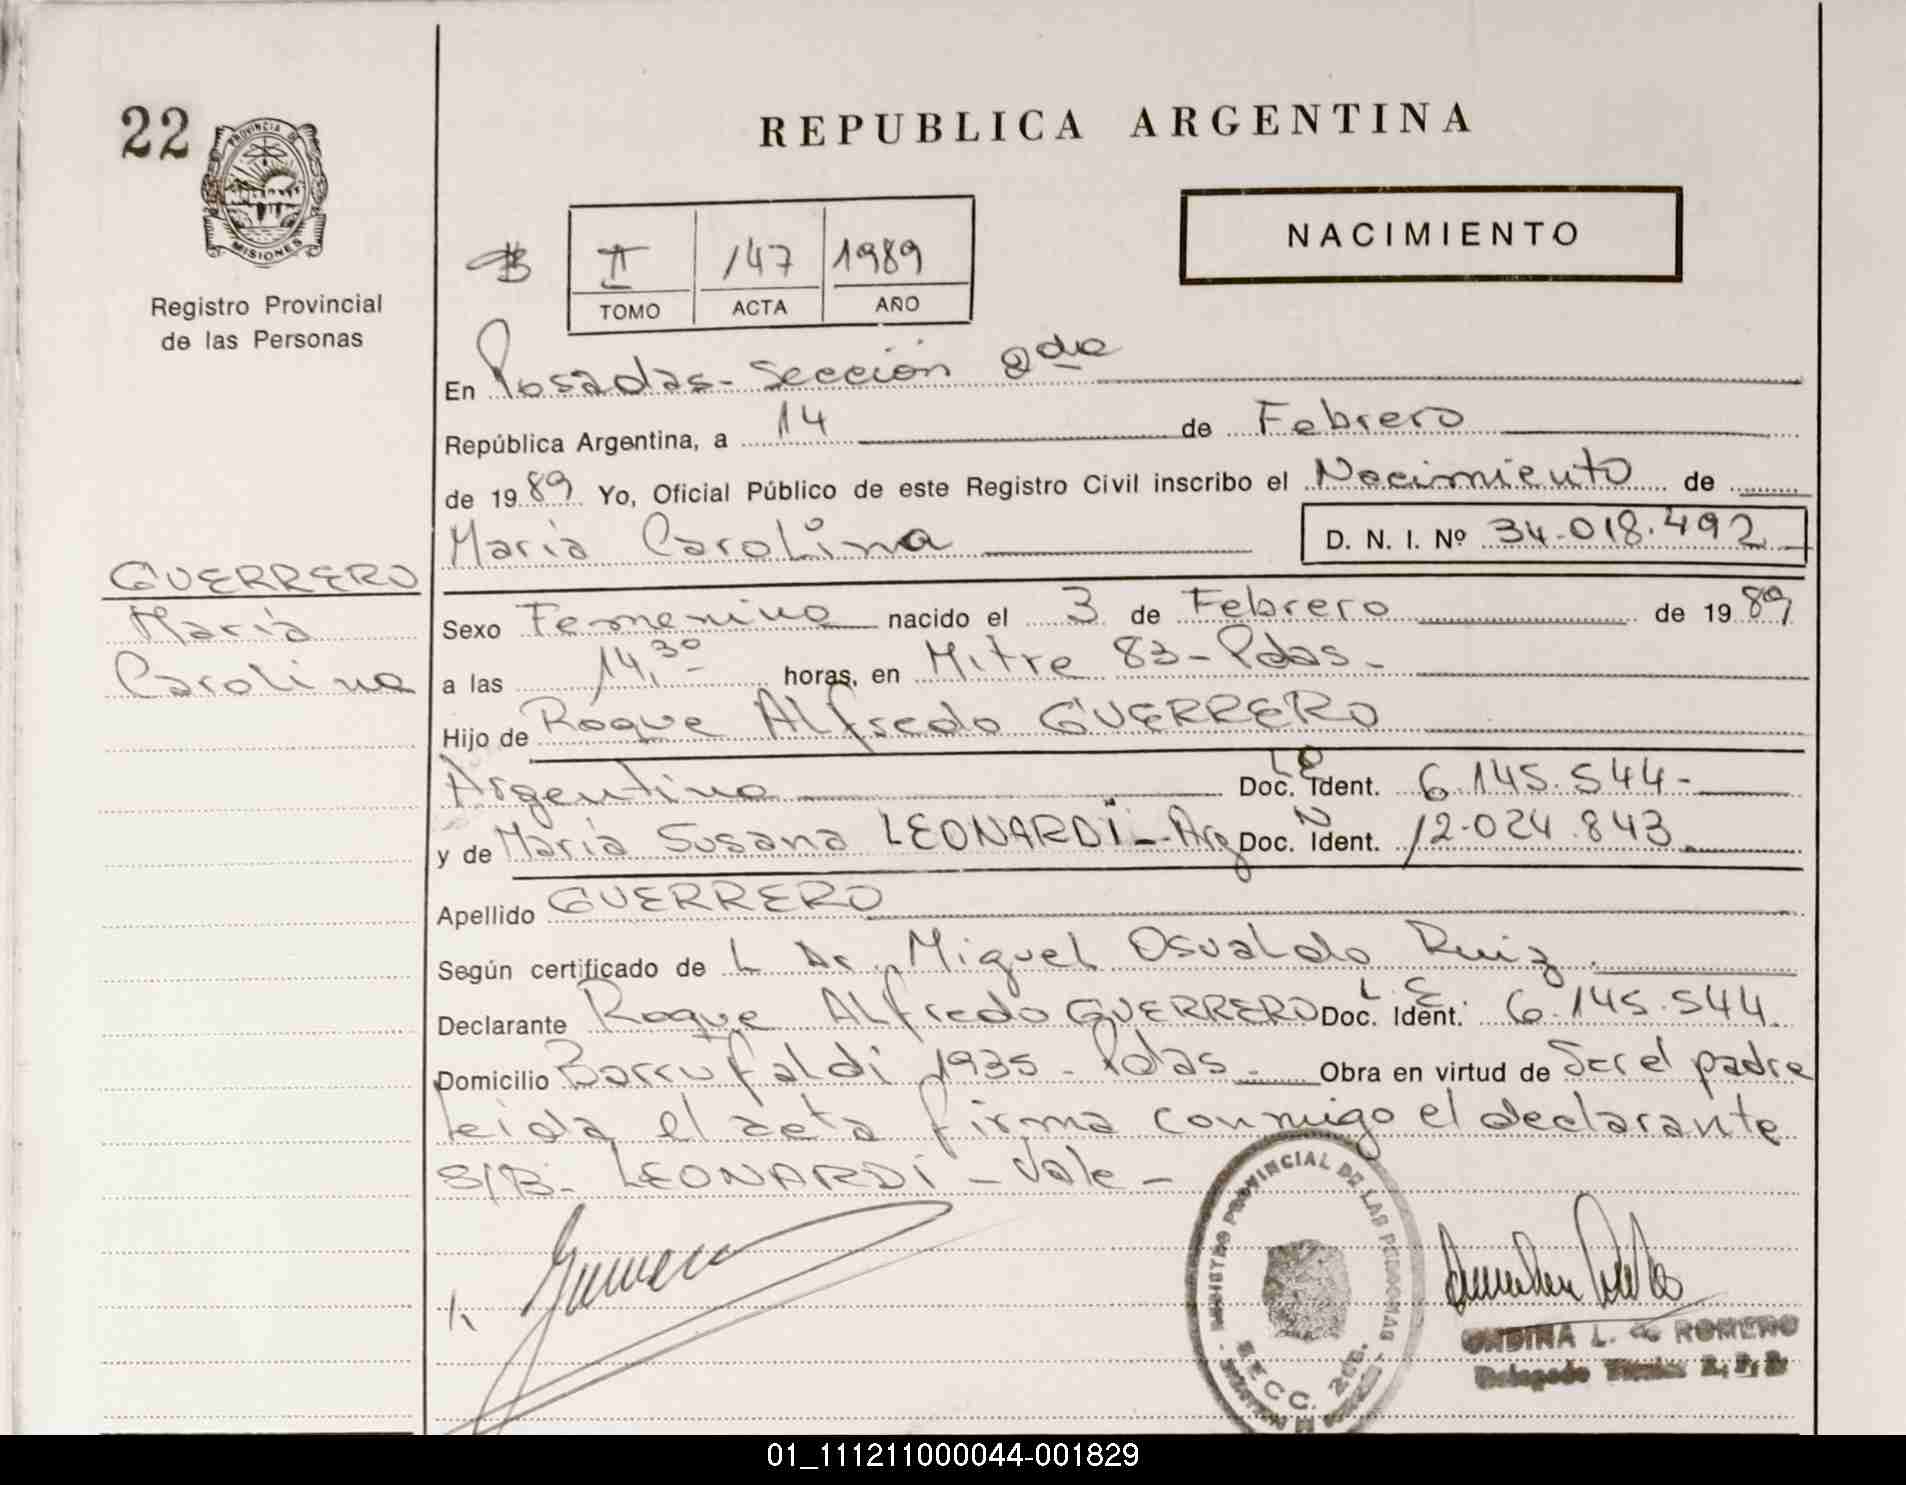 22
PROVINCIA DE
MISIONES
Registro Provincial
de las Personas
REPUBLICA ARGENTINA
NACIMIENTO
II 147 1989
TOMO ACTA AÑO
En Posadas - Sección 2da
República Argentina, a 14 de Febrero
de 1989 Yo, Oficial Público de este Registro Civil inscribo el Nacimiento de
María Carolina D. N. I. Nº 34.018.492
GUERRERO
María
Carolina
Sexo Femenino nacido el 3 de Febrero de 1989
a las 14,30 horas, en Mitre 83 - Pdas.
Hijo de Roque Alfredo GUERRERO
Argentino L E Doc. Ident. 6.145.544-
y de María Susana LEONARDI - Arg N Doc. Ident. 12.024.843
Apellido GUERRERO
Según certificado de L Dr. Miguel Osvaldo Ruiz.
Declarante Roque Alfredo GUERRERO L. E. Doc. Ident. 6.145.544.
Domicilio Barrufaldi 1935 - Pdas - Obra en virtud de Ser el padre
leida el acta firma conmigo el declarante
S/B: LEONARDI - Vale -
REGISTRO PROVINCIAL DE LAS PERSONAS
SECC. 2da.
ONDINA L. de ROMERO
Delegado Técnico R. P. P.
01_111211000044-001829